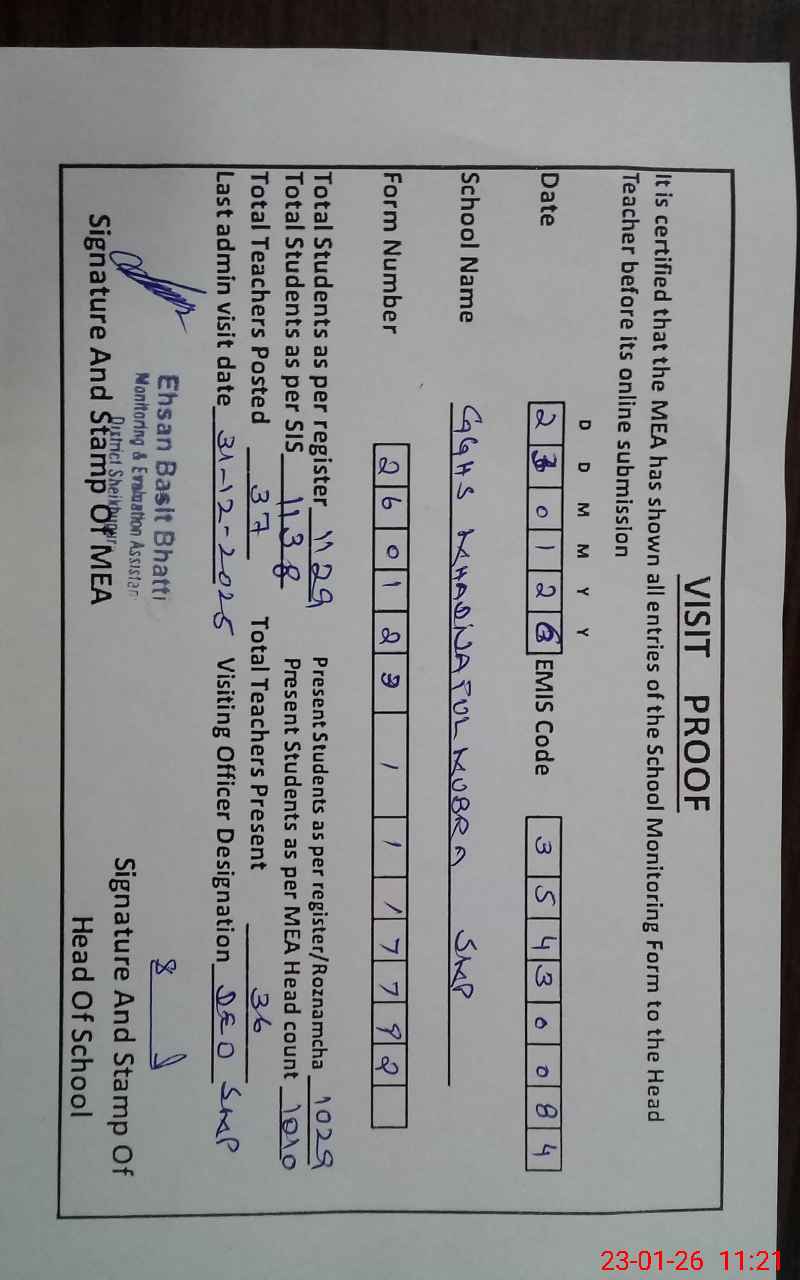 VISIT PROOF
It is certified that the MEA has shown all entries of the School Monitoring Form to the Head
Teacher before its online submission
D D M M Y Y
Date 230126 EMIS Code 35430084
School Name GGHS MHADINATUL MUBRA SKP
Form Number 2601231117792
Total Students as per register 1129 Present Students as per register/Roznamcha 1029
Total Students as per SIS 1138 Present Students as per MEA Head count 1010
Total Teachers Posted 37 Total Teachers Present 36
Last admin visit date 31-12-2025 Visiting Officer Designation DEO SKP
Ehsan Basit Bhatti
Monitoring & Evaluation Assistan
District Sheikhupura
Signature And Stamp Of MEA
Signature And Stamp Of
Head Of School
23-01-26 11:21